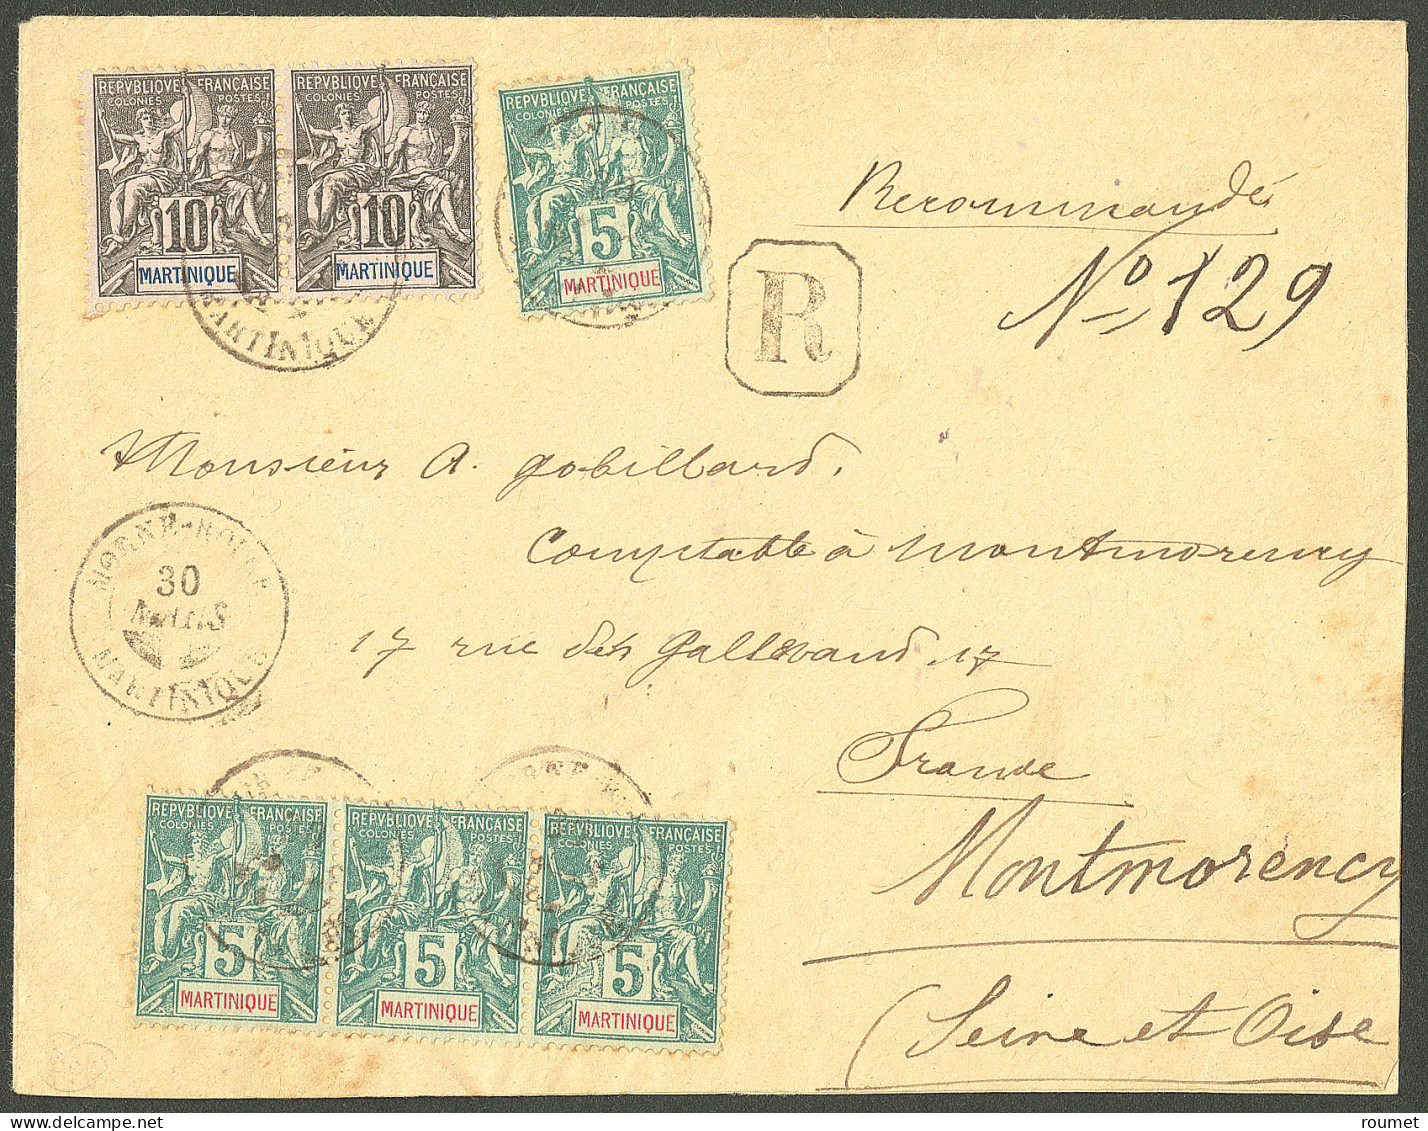 REPVBLIQVE FRANÇAISE
COLONIES POSTES
10
MARTINIQUE
REPVBLIQVE FRANÇAISE
COLONIES POSTES
10
MARTINIQUE
MARTINIQUE
REPVBLIQVE FRANÇAISE
COLONIES POSTES
5
MARTINIQUE
R
Recommandés
No 129
Monsieur A. Gobillard.
Comptable à Montmorency
17 rue des Gallerand 17
MORNE-ROUGE
30
MARS
MARTINIQUE
France
Montmorency
(Seine et Oise
REPVBLIQVE FRANÇAISE
COLONIES POSTES
5
MARTINIQUE
REPVBLIQVE FRANÇAISE
COLONIES POSTES
5
MARTINIQUE
REPVBLIQVE FRANÇAISE
COLONIES POSTES
5
MARTINIQUE
roumet
delcampe.net